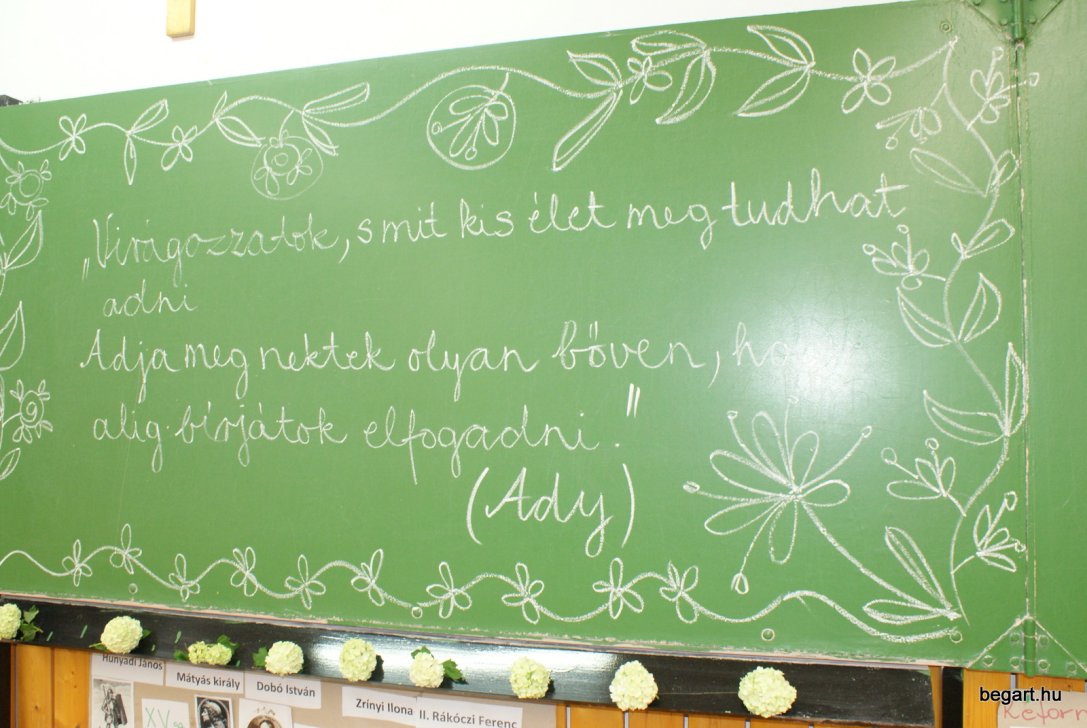 „Virágozzatok, s mit kis élet meg tudhat
adni
Adja meg nektek olyan bőven, hogy
alig bírjátok elfogadni."
(Ady)
Hunyadi János
Mátyás király
Dobó István
Zrínyi Ilona
II. Rákóczi Ferenc
begart.hu